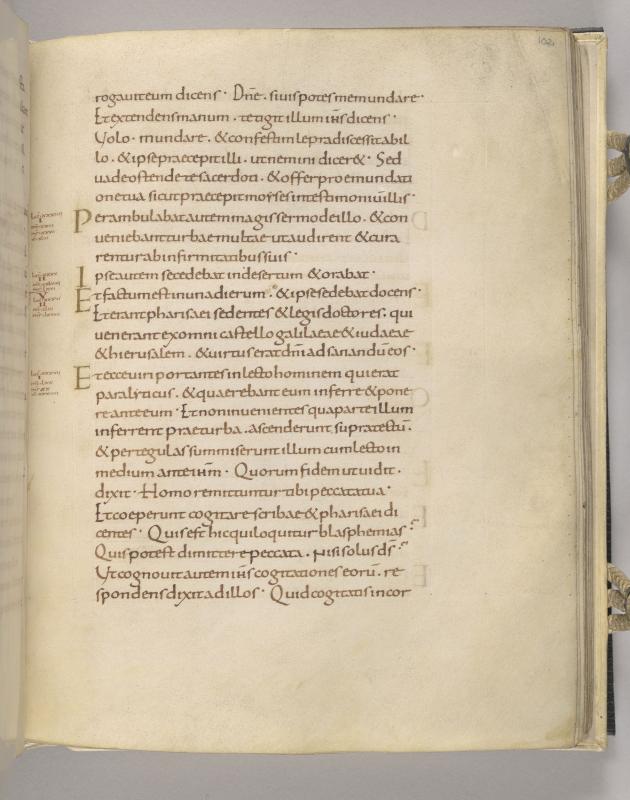 102
rogauit eum dicens · Dn̄e · si uis potes me mundare ·
Et extendens manum · tetigit illum ih̄s dicens ·
Volo · mundare · & confestim lepra discessit ab il
lo · & ipse praecepit illi · ut nemini dicer& · Sed
uade ostende te sacerdoti · & offer pro emundati
one tua sicut praecepit moyses in testimoniū illis ·
Perambulabat autem magis sermo de illo · & con
ueniebant turbae multae ut audirent & cura
rentur ab infirmitatibus suis ·
Ipse autem secedebat in desertum & orabat ·
Et factum est in una dierum · & ipse sedebat docens ·
Et erant pharisaei sedentes & legis doctores · qui
uenerant ex omni castello galilaeae & iudaeae
& hierusalem · & uirtus erat dn̄i ad sanandū eos ·
Et ecce uiri portantes in lecto hominem qui erat
paralyticus · & quaerebant eum inferre & pone
re ante eum · Et non inuenientes qua parte illum
inferrent prae turba · ascenderunt supra tectū ·
& per tegulas summiserunt illum cum lecto in
medium ante ih̄m · Quorum fidem ut uidit ·
dixit · Homo remittuntur tibi peccata tua ·
Et coeperunt cogitare scribae & pharisaei di
centes · Quis est hic qui loquitur blasphemias ·
Quis potest dimittere peccata · nisi solus d̄s ·
Vt cognouit autem ih̄s cogitationes eorū · re
spondens dixit ad illos · Quid cogitatis in cor